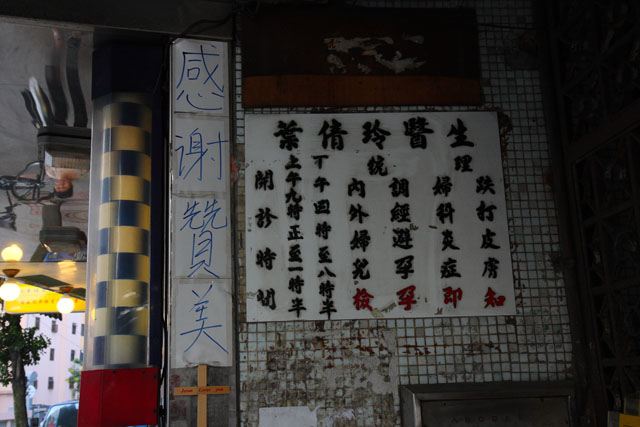 感謝贊美
葉倩玲醫生
統理
跌打皮膚
婦科炎症
調經避孕
內外婦兒
檢孕即知
開診時間
上午九時正至一時半
下午四時至八時半